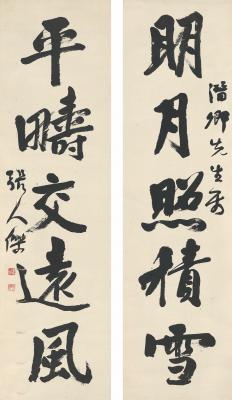 明月照積雪
潛卿先生屬
平疇交遠風
張人傑